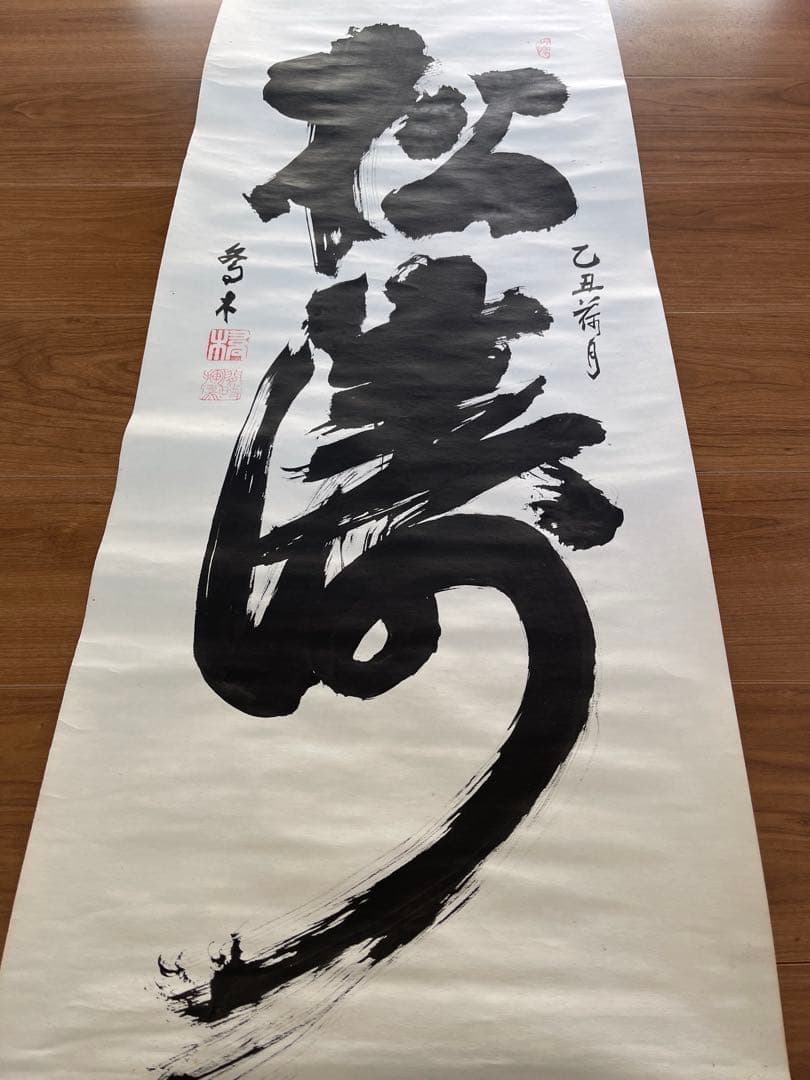 松濤
乙丑荷月
喬木